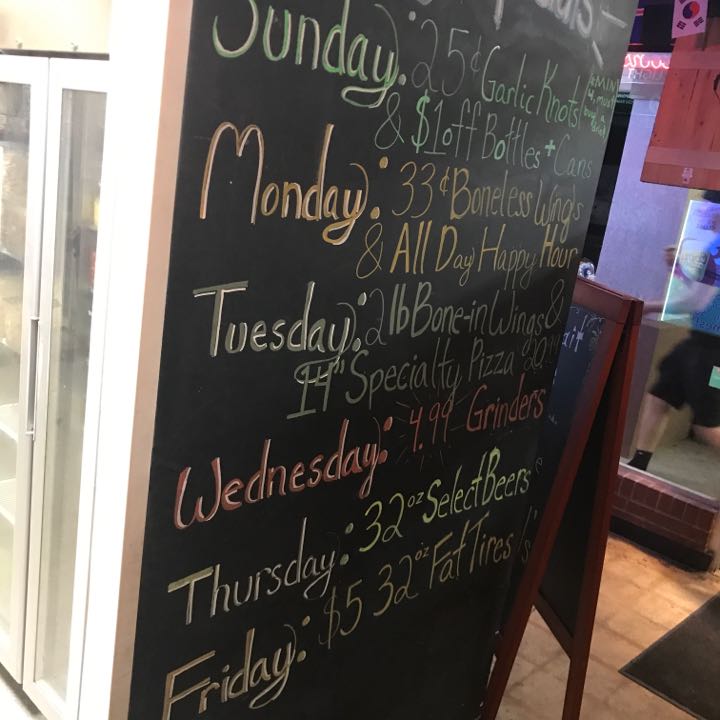 Sunday: 25¢ Garlic Knots
& $1 off Bottles + Cans
Monday: 33¢ Boneless Wings
& All Day Happy Hour
Tuesday: 2 lb Bone-in Wings &
14" Specialty Pizza 20.99
Wednesday: 4.99 Grinders
Thursday: 32oz Select Beers
$5 32oz Fat Tires
Friday: